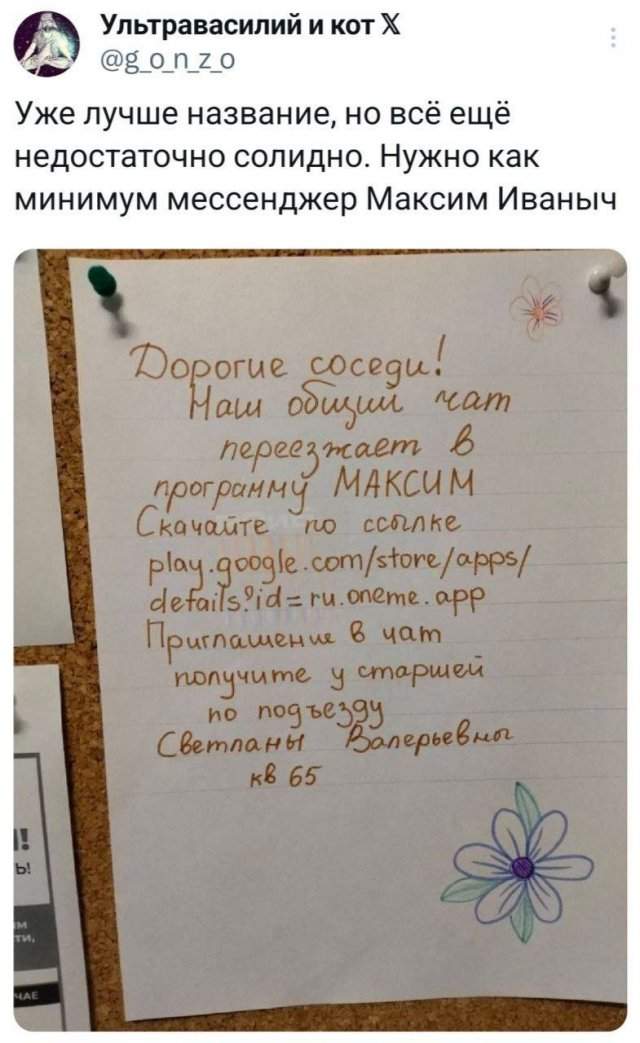 Ультравасилий и кот X
@g_o_n_z_o
Уже лучше название, но всё ещё
недостаточно солидно. Нужно как
минимум мессенджер Максим Иваныч
Дорогие соседи!
Наш общий чат
переезжает в
программу МАКСИМ
Скачайте по ссылке
play.google.com/store/apps/
details?id=ru.oneme.app
Приглашение в чат
получите у старшей
по подъезду
Светланы Валерьевны
кв 65
!
Ь!
ЧАЕ